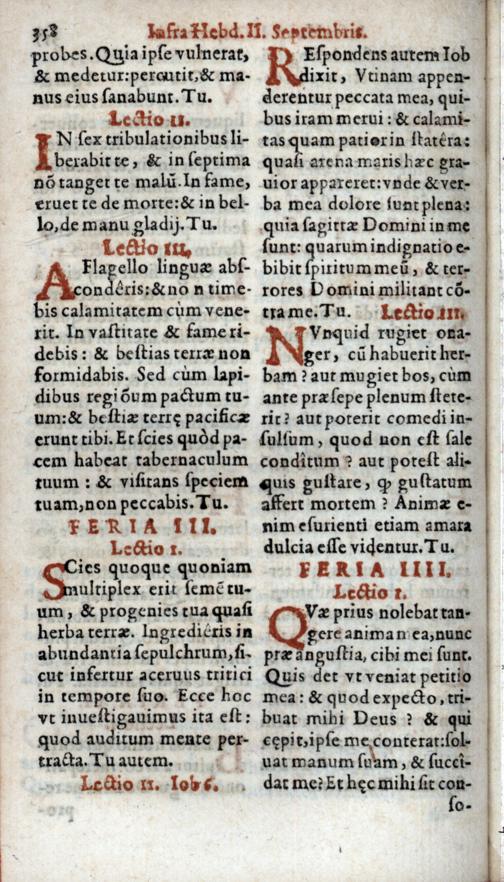 358 Infra Hebd. II. Septembris.
probes. Quia ipſe vulnerat,
& medetur: percutit, & ma-
nus eius ſanabunt. Tu.
Lectio II.
IN ſex tribulationibus li-
berabit te, & in ſeptima
nō tanget te malū. In fame,
eruet te de morte: & in bel-
lo, de manu gladij. Tu.
Lectio III.
A Flagello linguæ abſ-
condêris: & no n time-
bis calamitatem cùm vene-
rit. In vaſtitate & fame ri-
debis: & beſtias terræ non
formidabis. Sed cùm lapi-
dibus regiōum pactum tu-
um: & beſtiæ terrę pacificæ
erunt tibi. Et ſcies quòd pa-
cem habeat tabernaculum
tuum : & viſitans ſpeciem
tuam, non peccabis. Tu.
FERIA III.
Lectio I.
SCies quoque quoniam
multiplex erit ſemē tu-
um, & progenies tua quaſi
herba terræ. Ingrediêris in
abundantia ſepulchrum, ſi-
cut infertur aceruus tritici
in tempore ſuo. Ecce hoc
vt inueſtigauimus ita eſt:
quod auditum mente per-
tracta. Tu autem.
Lectio II. Iob 6.
REſpondens autem Iob
dixit, Vtinam appen-
derentur peccata mea, qui-
bus iram merui: & calami-
tas quam patior in ſtatêra:
quaſi arena maris hæc gra-
uior appareret: vnde & ver-
ba mea dolore ſunt plena:
quia ſagittæ Domini in me
ſunt: quarum indignatio e-
bibit ſpiritum meū, & ter-
rores Domini militant cō-
tra me. Tu. Lectio III.
NVnquid rugiet ona-
ger, cū habuerit her-
bam? aut mugiet bos, cùm
ante præſepe plenum ſtete-
rit? aut poterit comedi in-
ſulſum, quod non eſt ſale
condîtum? aut poteſt ali-
quis guſtare, ꝙ guſtatum
affert mortem? Animæ e-
nim eſurienti etiam amara
dulcia eſſe videntur. Tu.
FERIA IIII.
Lectio I.
QVæ prius nolebat tan-
gere anima mea, nunc
præ anguſtia, cibi mei ſunt.
Quis det vt veniat petitio
mea: & quod expecto, tri-
buat mihi Deus? & qui
cępit, ipſe me conterat: ſol-
uat manum ſuam, & ſuccî-
dat me? Et hęc mihi ſit con-
ſo-